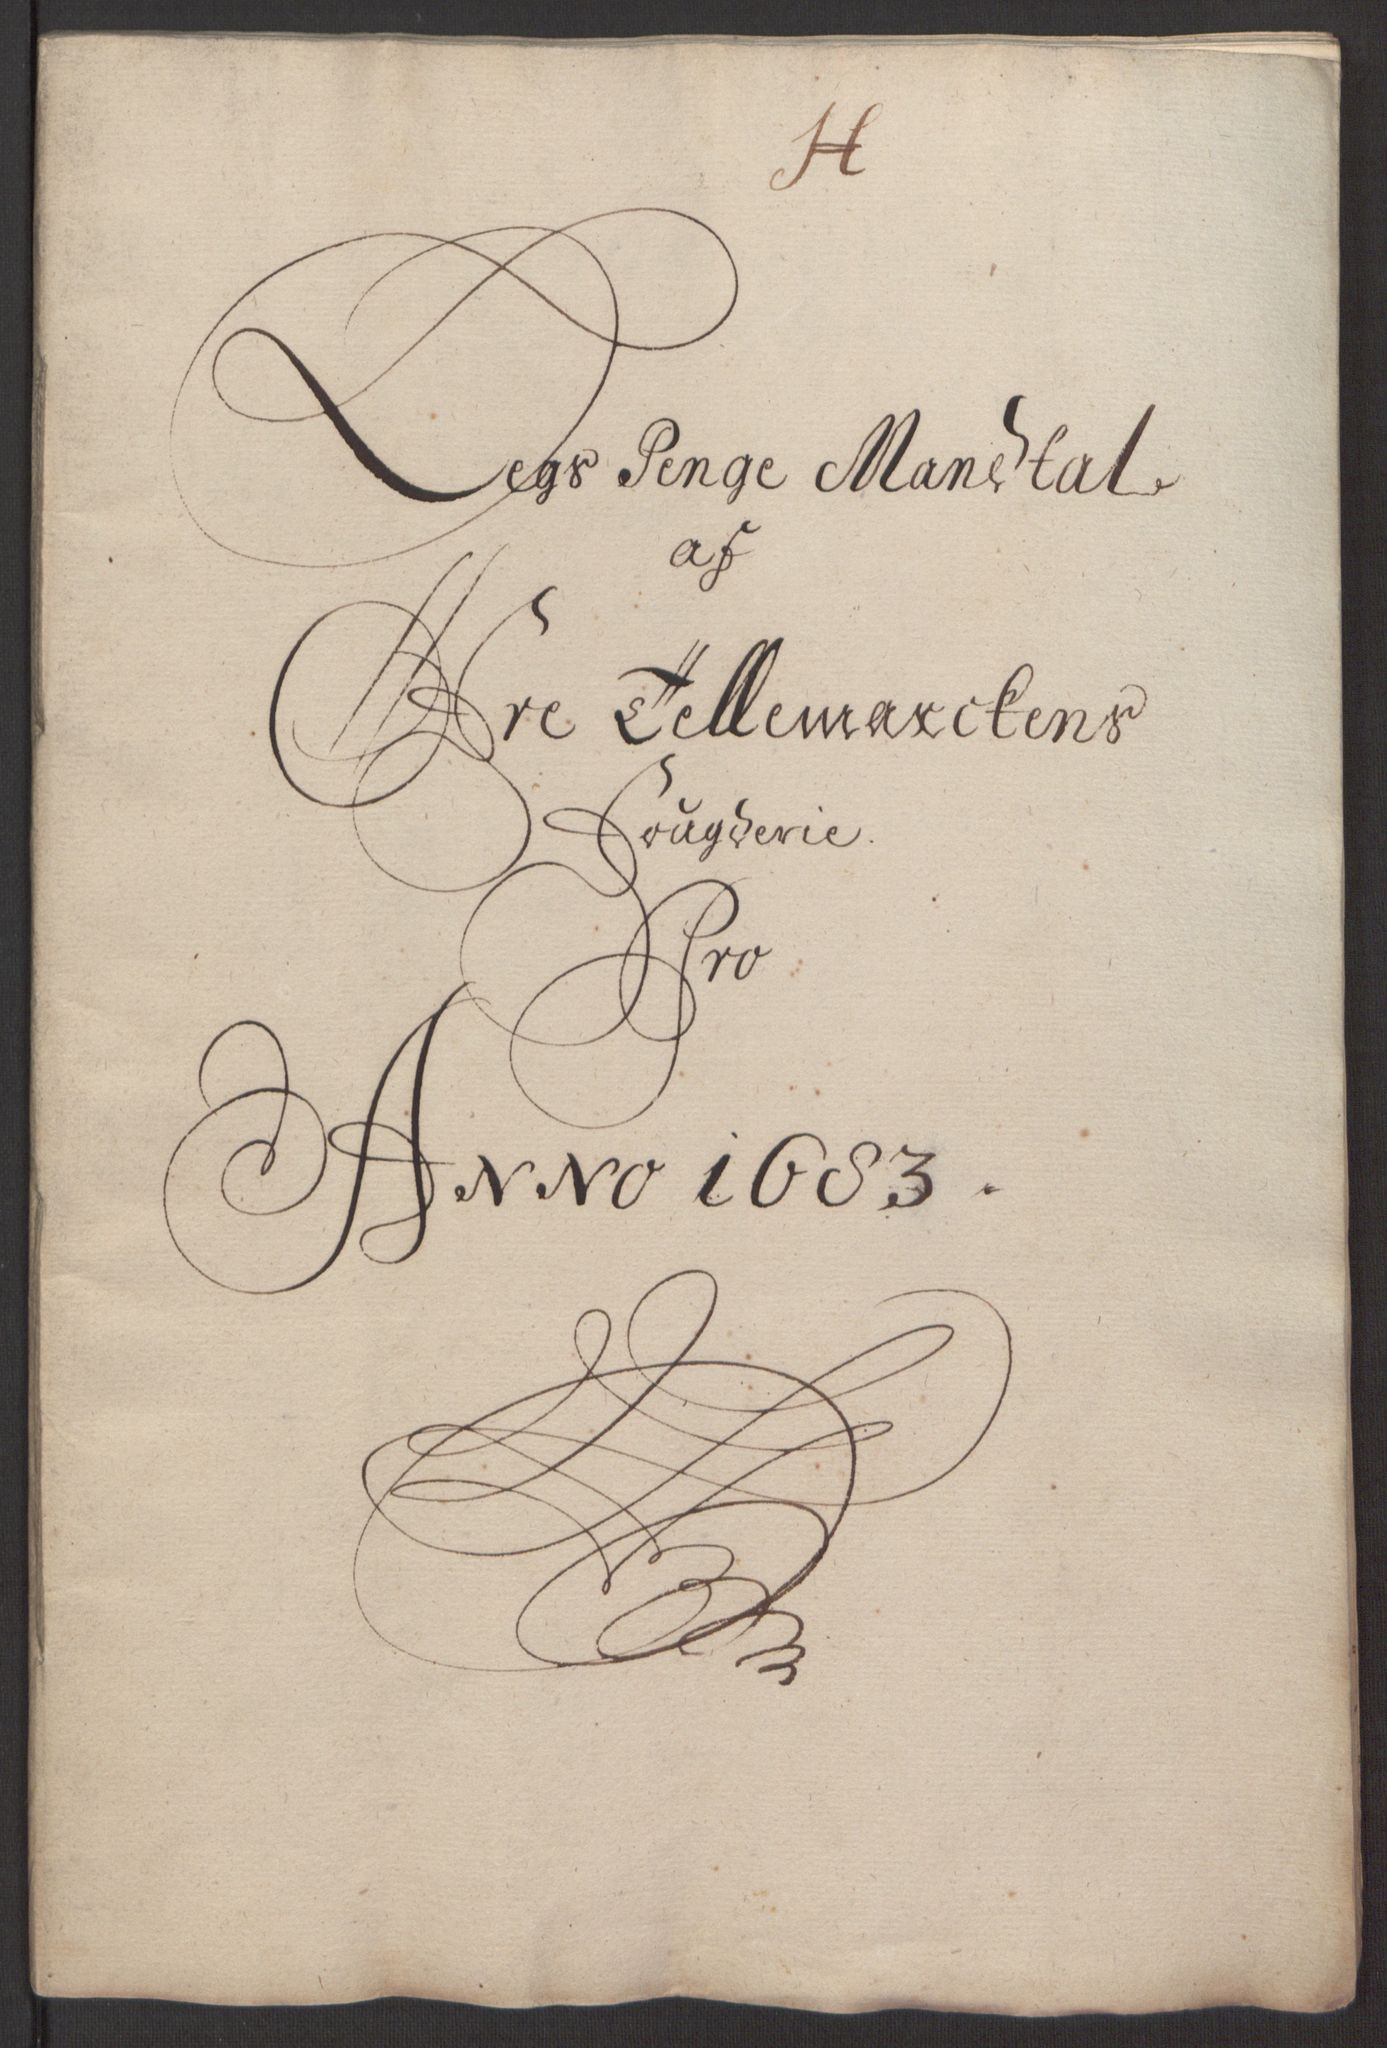 H
Legs Penge Mandtal
af
Øfre Tellemarckens
Fougderie.
Pro
Anno 1683.